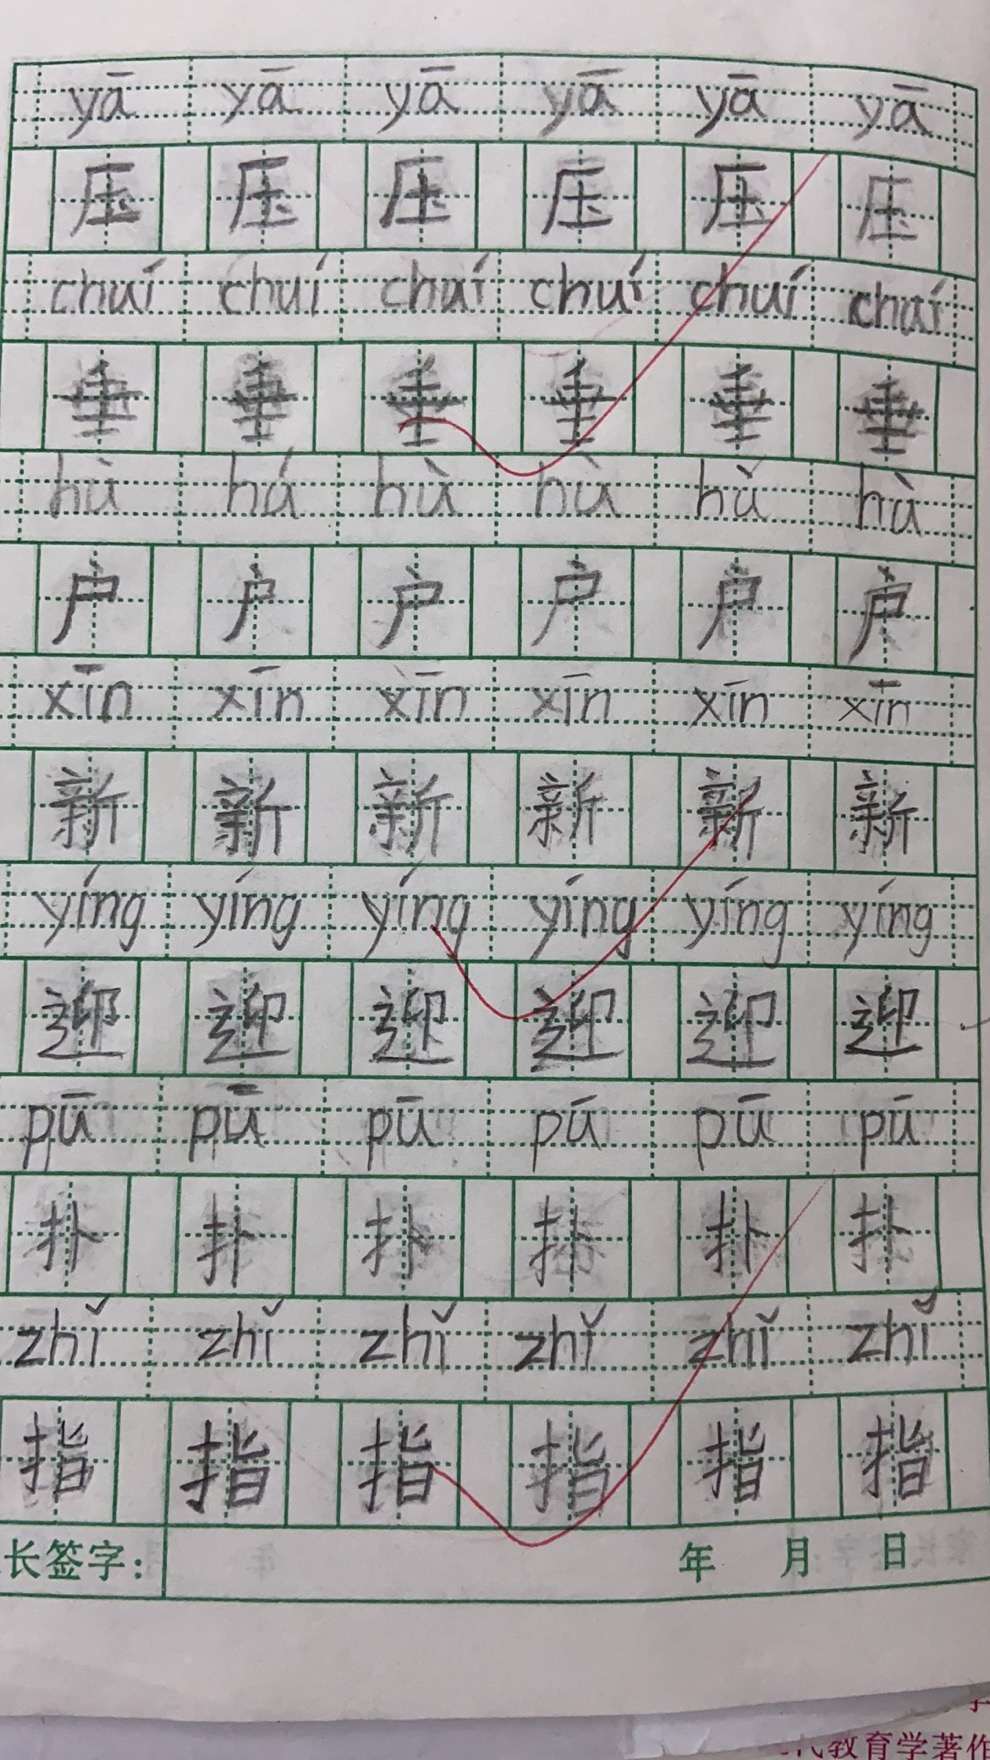 yā yā yā yā yā yā
压 压 压 压 压 压
chuí chuí chuí chuí chuí chuí
垂 垂 垂 垂 垂 垂
hù há hù hù hǔ hù
户 户 户 户 户 户
xīn xīn xīn xīn xīn xīn
新 新 新 新 新 新
yíng yíng yíng yíng yíng yíng
迎 迎 迎 迎 迎 迎
pū pū pū pū pū pū
扑 扑 扑 扑 扑 扑
zhǐ zhǐ zhǐ zhǐ zhǐ zhǐ
指 指 指 指 指 指
长签字: 年 月 日
代教育学著作